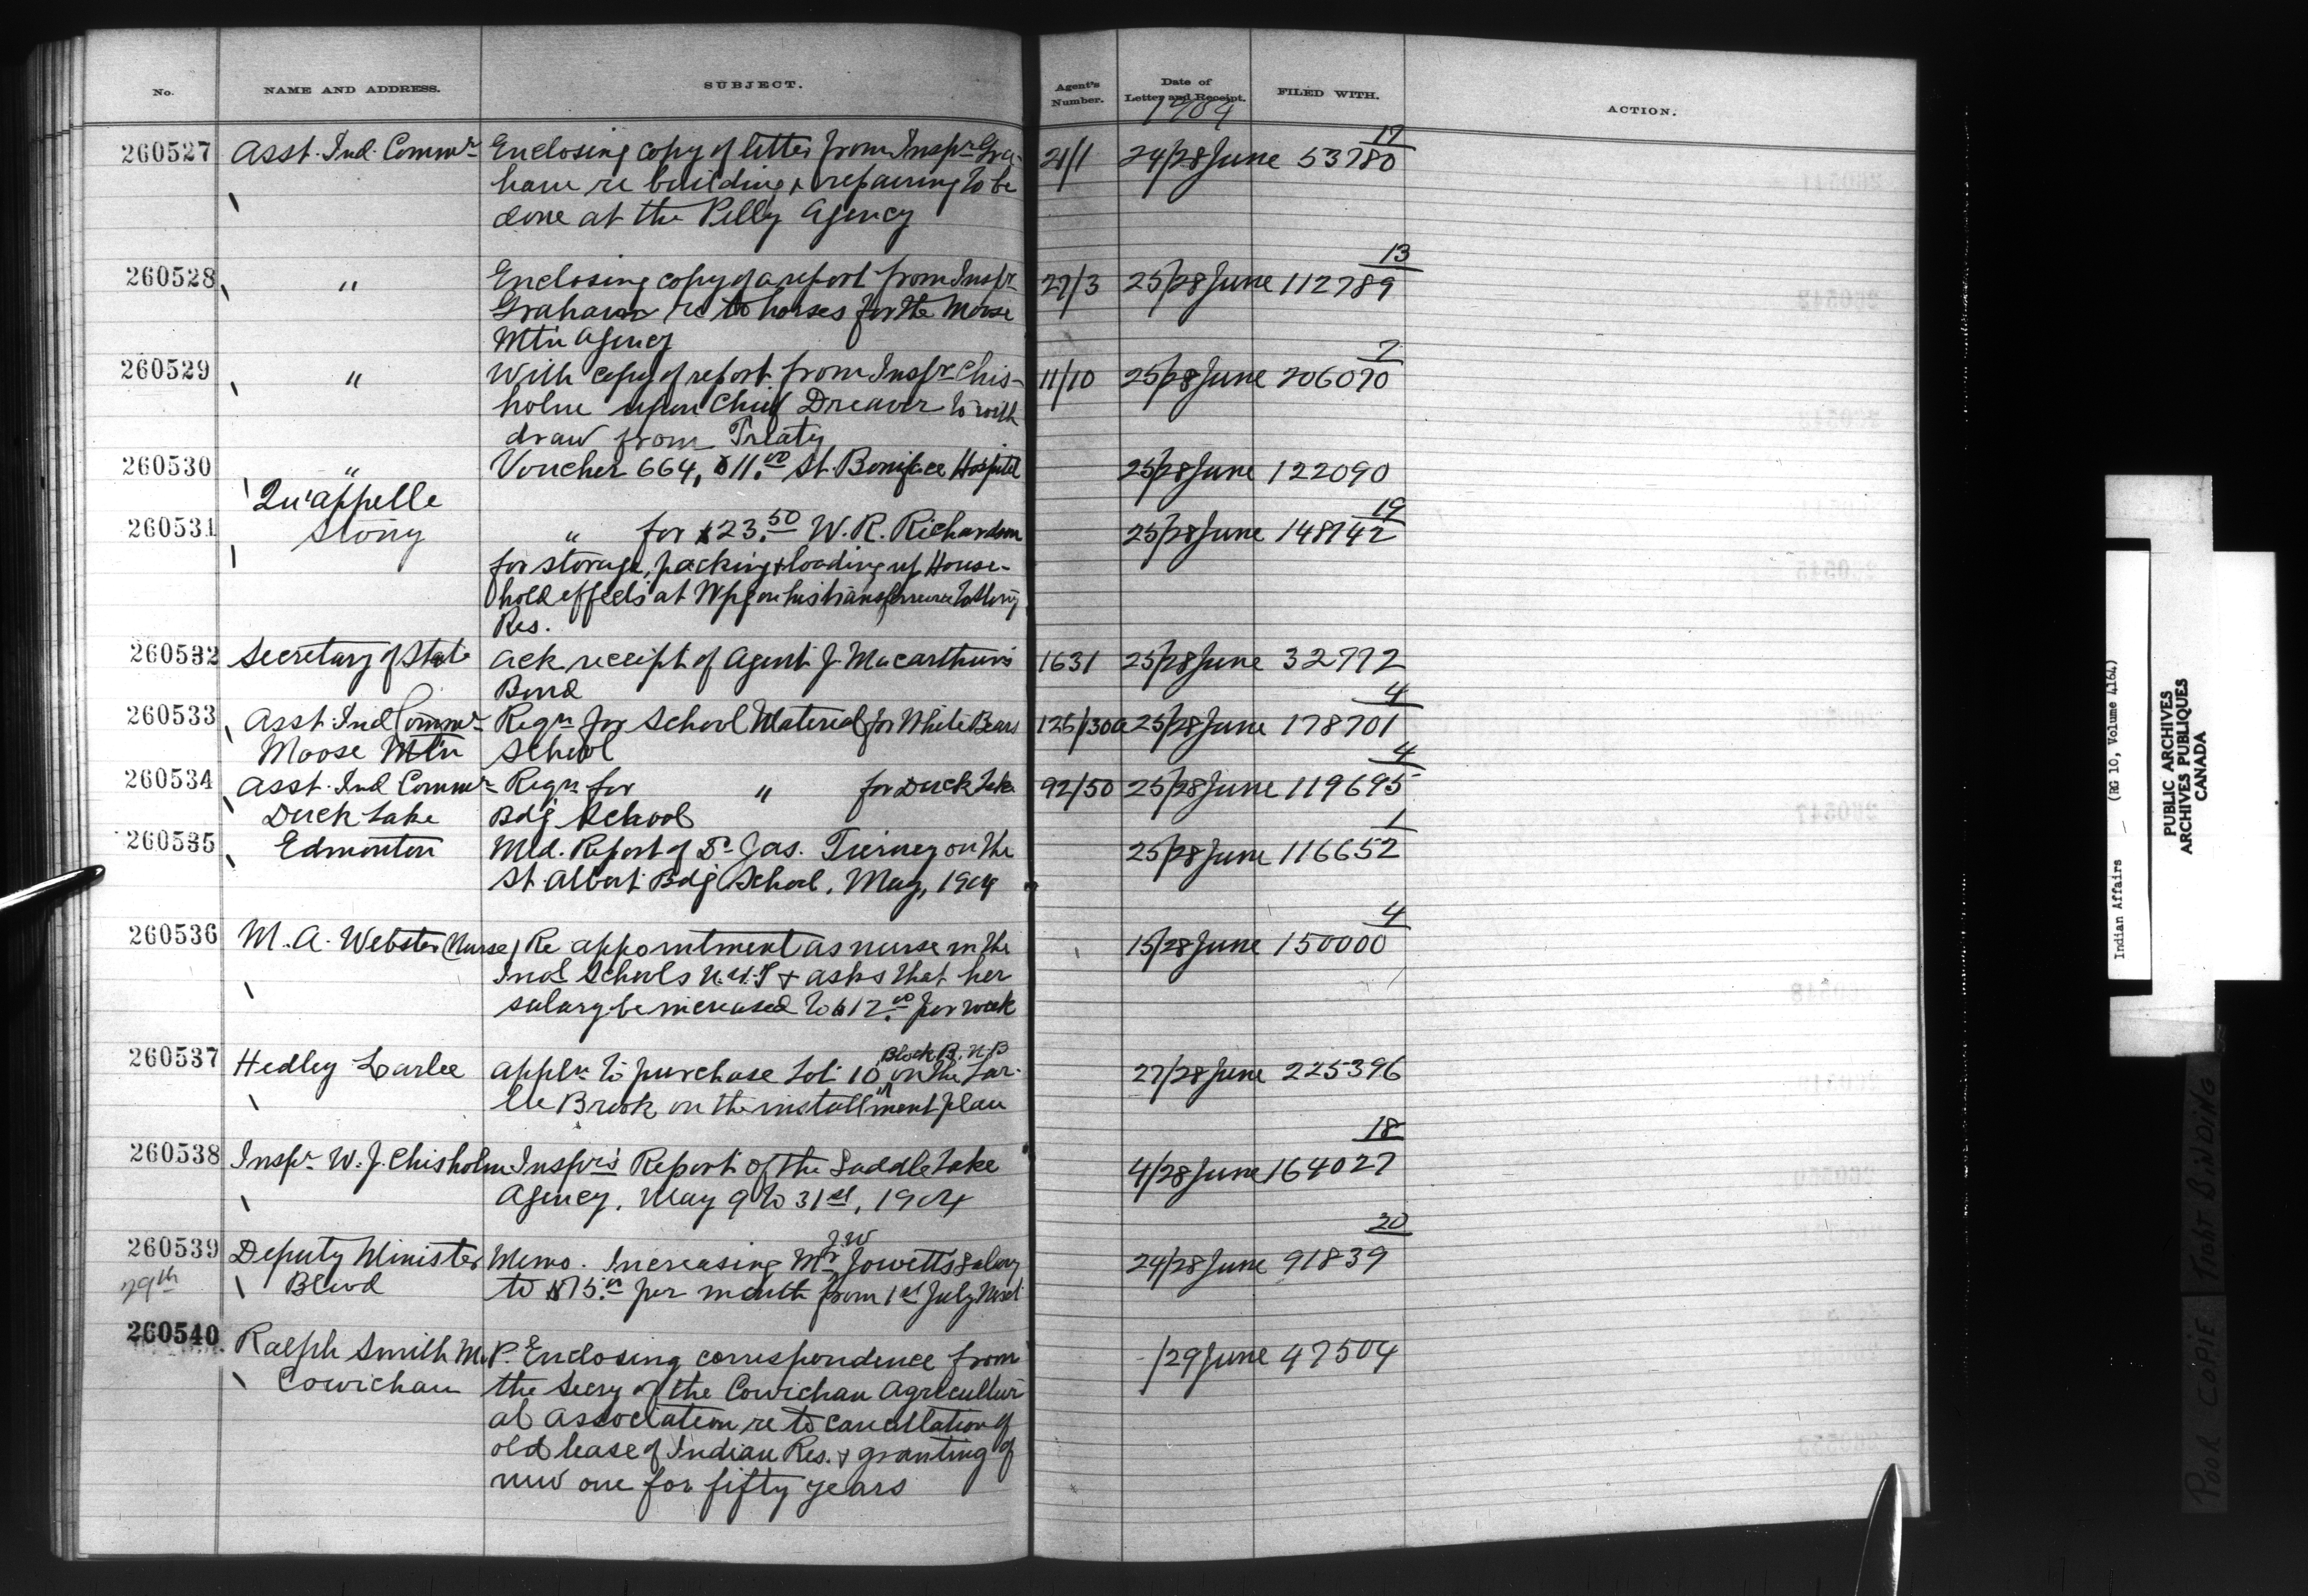 No. NAME AND ADDRESS. SUBJECT. Agent's Number. Date of Letter and Receipt. FILED WITH. ACTION.
1904
17
260527 Asst. Ind. Commr Enclosing copy of letter from Inspr Gra- 21/1 24/28 June 53780
ham re building & repairing to be
done at the Pelly Agency
13
260528 " Enclosing copy of a report from Inspr 27/3 25/28 June 112789
Graham re to horses for the Moose
Mtn Agency
2
260529 " With copy of report from Inspr Chis- 11/10 25/28 June 206070
holm upon Chief Dreaver to with
draw from Treaty
260530 " Voucher 664, $11.00 St. Boniface Hospital 25/28 June 122090
Qu'appelle
19
260531 Stony " for $23.50 W. R. Richardson 25/28 June 148742
for storage, packing & loading up House-
hold effects at Wpg on his transference to Stony
Res.
260532 Secretary of State Ack receipt of Agent J. Macarthur's 1631 25/28 June 32772
Bond
4
260533 Asst. Ind Commr Reqn for School Material for White Bears 125/130a 25/28 June 178701
Moose Mtn School
4
260534 Asst. Ind Commr Reqn for " for Duck Lake 92/50 25/28 June 119695
Duck Lake Bdg School
1
260535 Edmonton Med. Report of Dr Jas. Tierney on the 25/28 June 116652
St. Albert Bdg School, May, 1904
4
260536 M. A. Webster (Nurse) Re appointment as nurse in the 15/28 June 150000
Indl Schools N.W.T & asks that her
salary be increased to $12.00 per week
Block B. N. B
260537 Hedley Larlee Appln to purchase Lot 10 on the Lar- 27/28 June 225396
lee Brook on the installment plan
18
260538 Inspr W. J. Chisholm Inspr's Report of the Saddle Lake 4/28 June 164027
Agency. May 9 to 31st, 1904
J. W 20
260539 Deputy Minister Memo. Increasing Mr Jowett's Salary 24/28 June 91839
29th Blood to $75.00 per month from 1st July next
260540 Ralph Smith M.P. Enclosing correspondence from -/29 June 47504
Cowichan the Secry of the Cowichan Agricultur
al Association re to cancellation of
old lease of Indian Res. & granting of
new one for fifty years
Indian Affairs (RG 10, Volume 4164)
PUBLIC ARCHIVES
ARCHIVES PUBLIQUES
CANADA
POOR COPIE TIGHT BINDING